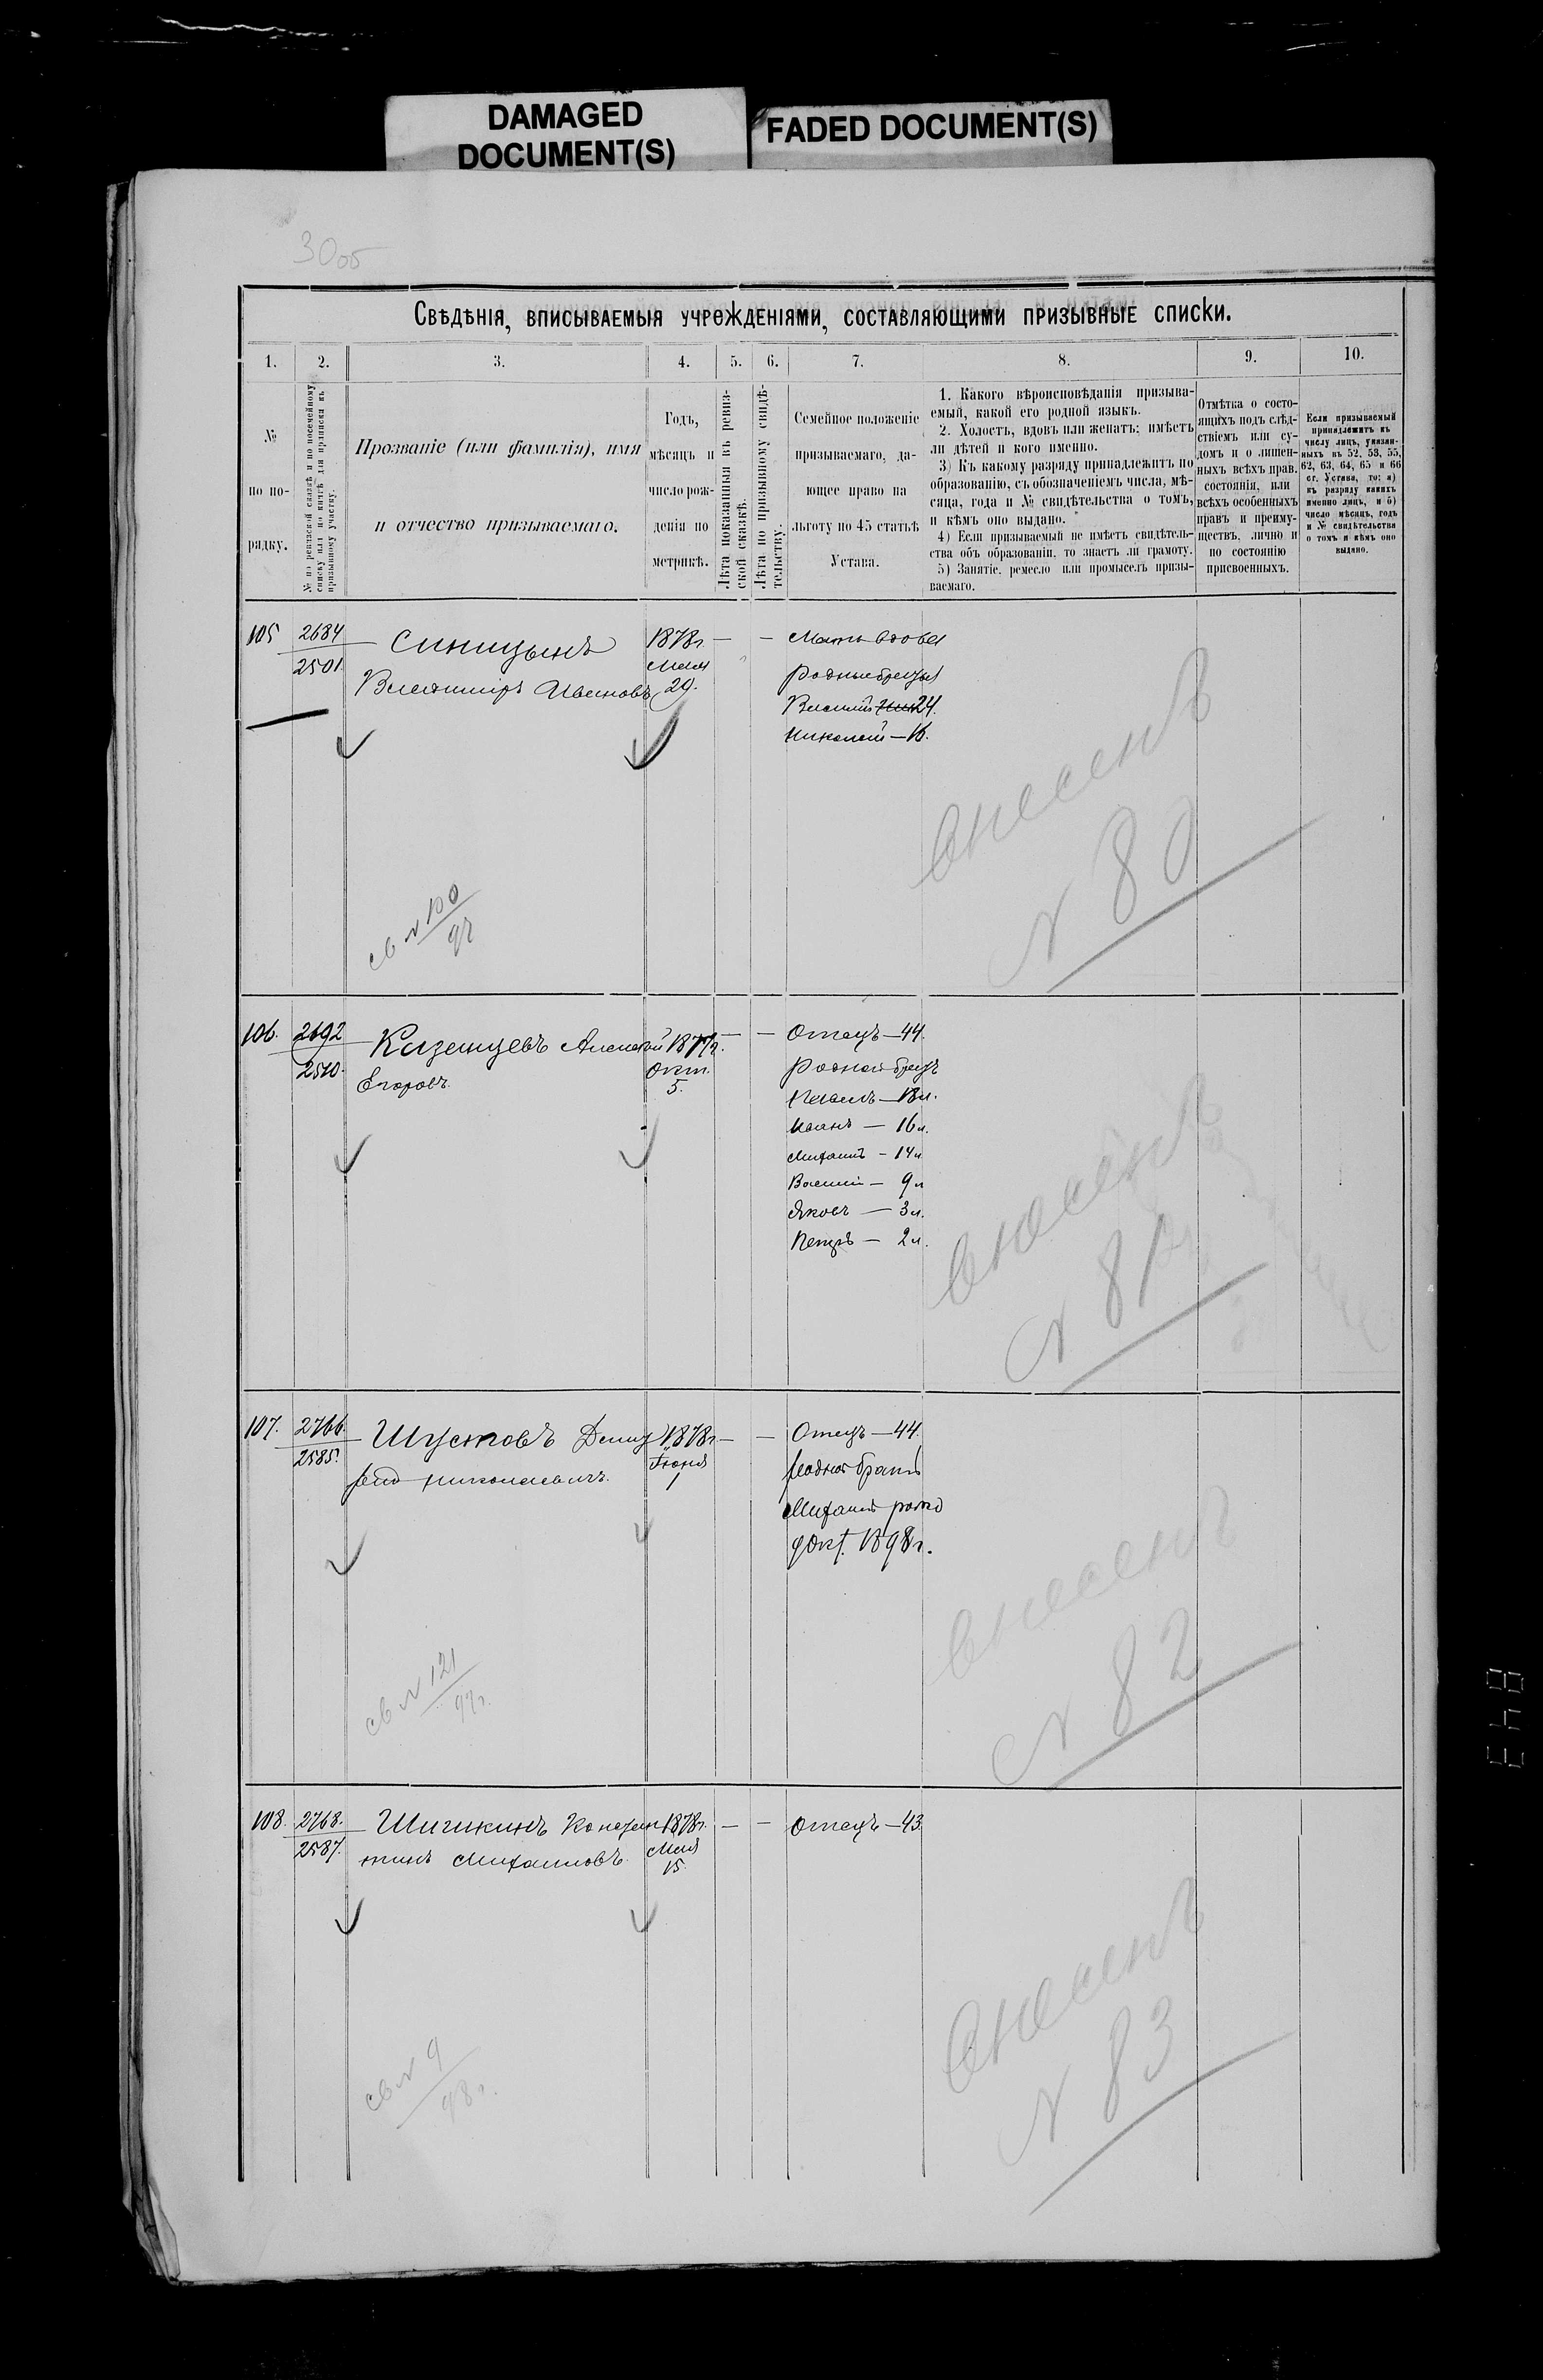 DAMAGED
DOCUMENT(S)
FADED DOCUMENT(S)
30об
Свѣдѣнія, вписываемыя учрежденіями, составляющими призывные списки.
1. 2. 3. 4. 5. 6. 7. 8. 9. 10.
№
по по-
рядку.
№ по ревизской сказкѣ и по посемейному
списку или по книгѣ для приписки къ
призывному участку.
Прозваніе (или фамилія), имя
и отчество призываемаго.
Годъ,
мѣсяцъ и
число рож-
денія по
метрикѣ.
Лѣта показанныя въ ревиз-
ской сказкѣ.
Лѣта по призывному свидѣ-
тельству.
Семейное положеніе
призываемаго, да-
ющее право на
льготу по 45 статьѣ
Устава.
1. Какого вѣроисповѣданія призыва-
емый, какой его родной языкъ.
2. Холостъ, вдовъ или женатъ; имѣетъ
ли дѣтей и кого именно.
3) Къ какому разряду принадлежитъ по
образованію, съ обозначеніемъ числа, мѣ-
сяца, года и № свидѣтельства о томъ,
и кѣмъ оно выдано.
4) Если призываемый не имѣетъ свидѣтель-
ства объ образованіи, то знаетъ ли грамоту.
5) Занятіе, ремесло или промыселъ призы-
ваемаго.
Отмѣтка о состо-
ящихъ подъ слѣд-
ствіемъ или су-
домъ и о лишен-
ныхъ всѣхъ прав.
состоянія, или
всѣхъ особенныхъ
правъ и преиму-
ществъ, лично и
по состоянію
присвоенныхъ.
Если призываемый
принадлежитъ къ
числу лицъ, указан-
ныхъ въ 52, 53, 55,
62, 63, 64, 65 и 66
ст. Устава, то: а)
къ разряду какихъ
именно лицъ, и б)
число мѣсяцъ, годъ
и № свидѣтельства
о томъ и кѣмъ оно
выдано.
105 2684 Синицынъ 1878г. — — Мать вдова
2501 Владиміръ Ивановъ Мая 29. родные братья
Василій 24.
Николай — 16.
внесенъ
N 80
св N 100
97
106. 2692 Казанцевъ Алексѣй 1877г. — — Отецъ — 44.
2510. Егоровъ. Окт. 5. Родной братъ
Павелъ — 18л.
Иванъ — 16л.
Михаилъ — 14л
Василій — 9л
Яковъ — 3л.
Петръ — 2л.
внесенъ
N 81
107. 2766. Шустовъ Демид 1878г. — — Отецъ — 44.
2585. Николаевичъ. Іюня 1 Родной братъ
Михаилъ рожд
9 Окт. 1898г.
внесенъ
N 82
св N 121
97г.
108. 2768. Шишкинъ Констан 1878г. — — Отецъ — 43
2587. тинъ Михаиловъ. Мая 15.
внесенъ
N 83
св N 9
98г.
843